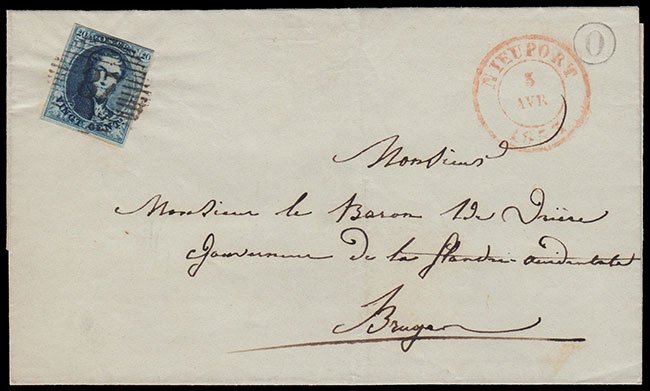 20 POSTES 20
VINGT CENTS
NIEUPORT
3
AVR
185
O
Monsieur
Monsieur le Baron De Vrière
Gouverneur de la flandre occidentale
Bruges